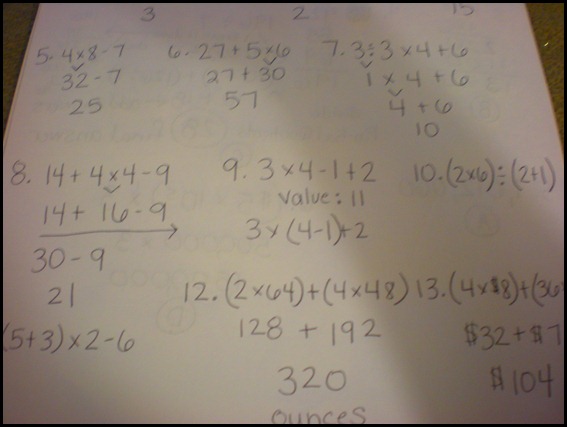 3 2 15
5. 4×8-7 6. 27+5×6 7. 3÷3×4+6
32-7 27+30 1×4+6
25 57 4+6
10
8. 14+4×4-9 9. 3×4-1+2 10. (2×6)÷(2+1)
14+16-9 Value: 11
3×(4-1)+2
30-9
21 12. (2×64)+(4×48) 13. (4×$8)+(36
(5+3)×2-6 128+192 $32+$7
320 $104
ounces